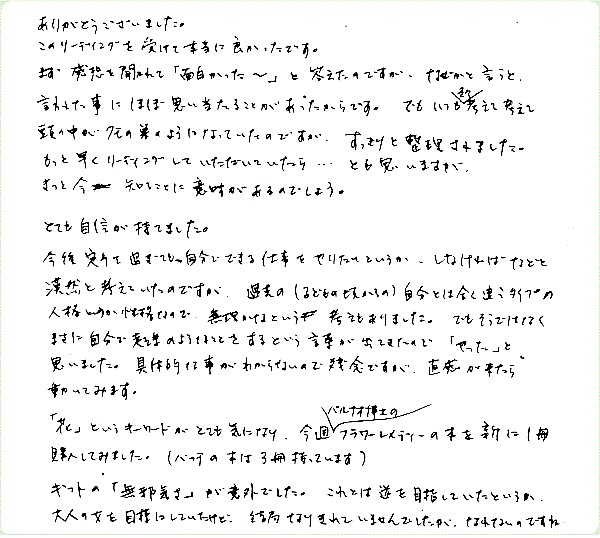 ありがとうございました。
このリーディングを受けて本当に良かったです。
まず感想を聞かれて「面白かった〜」と答えたのですが、なぜかと言うと、
言われた事にほぼ思い当たることがあったからです。でもいつも考えて考えて
頭の中がのようになっていたのですが、すっきりと整理されました。
もっと早くリーディングしていただいていたら…とも思いますが、
きっと今知ることに意味があるのでしょう。
とても自信が持てました。
今後自分でできる仕事をやりたいというか、しなければなどと
漠然と考えていたのですが、過去の(子どもの頃からの)自分とは全く違うタイプの
人格というか性格なので、無理かなという考えもありました。でもそうではなく
まさに自分でのようなことをするという言葉が出てきたので「やった」と
思いました。具体的仕事がわからないので残念ですが、直感が来たら
動いてみます。
「花」というキーワードがとても気になり、今週バルナオ博士のフラワーレメディーの本を新に1冊
購入してみました。(バッチの本は3冊持っています)
ギフトの「無邪気さ」が意外でした。これとは逆を目指していたというか、
大人の女を目標にしていたけど、結局なりきれていませんでしたが、なれないのですね